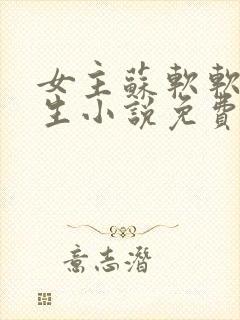 女主蘇軟軟
生小說免費
意志潛